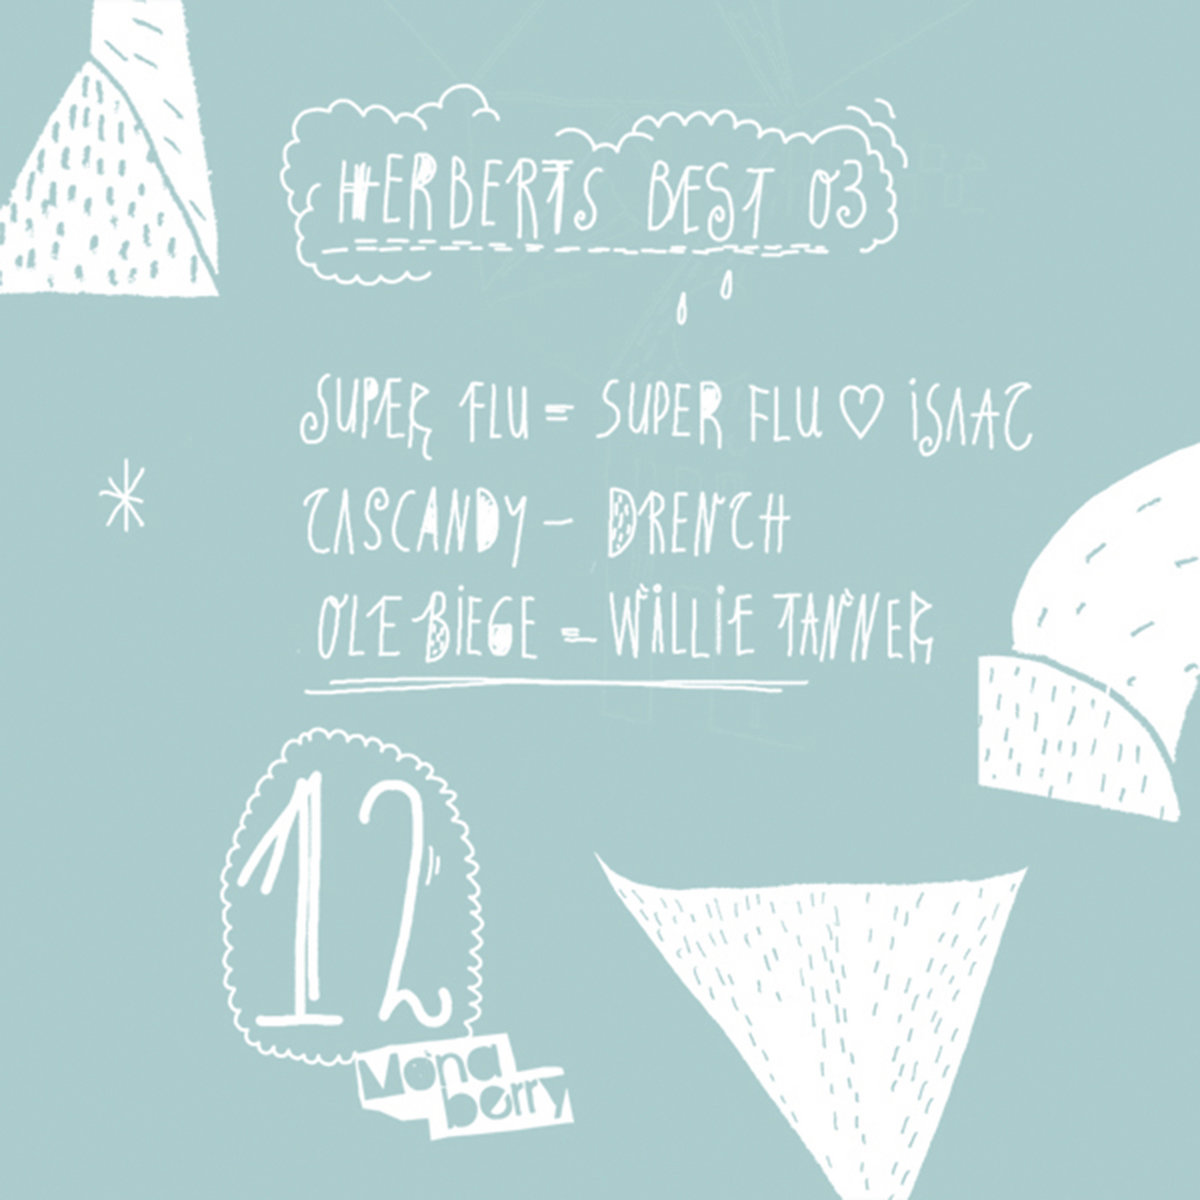 HERBERTS BEST 03
SUPER FLU = SUPER FLU ♡ iSAAC
CASCANDY – DRENCH
OLE BiEGE = WiLLiE TANNER
12
Mona
berry